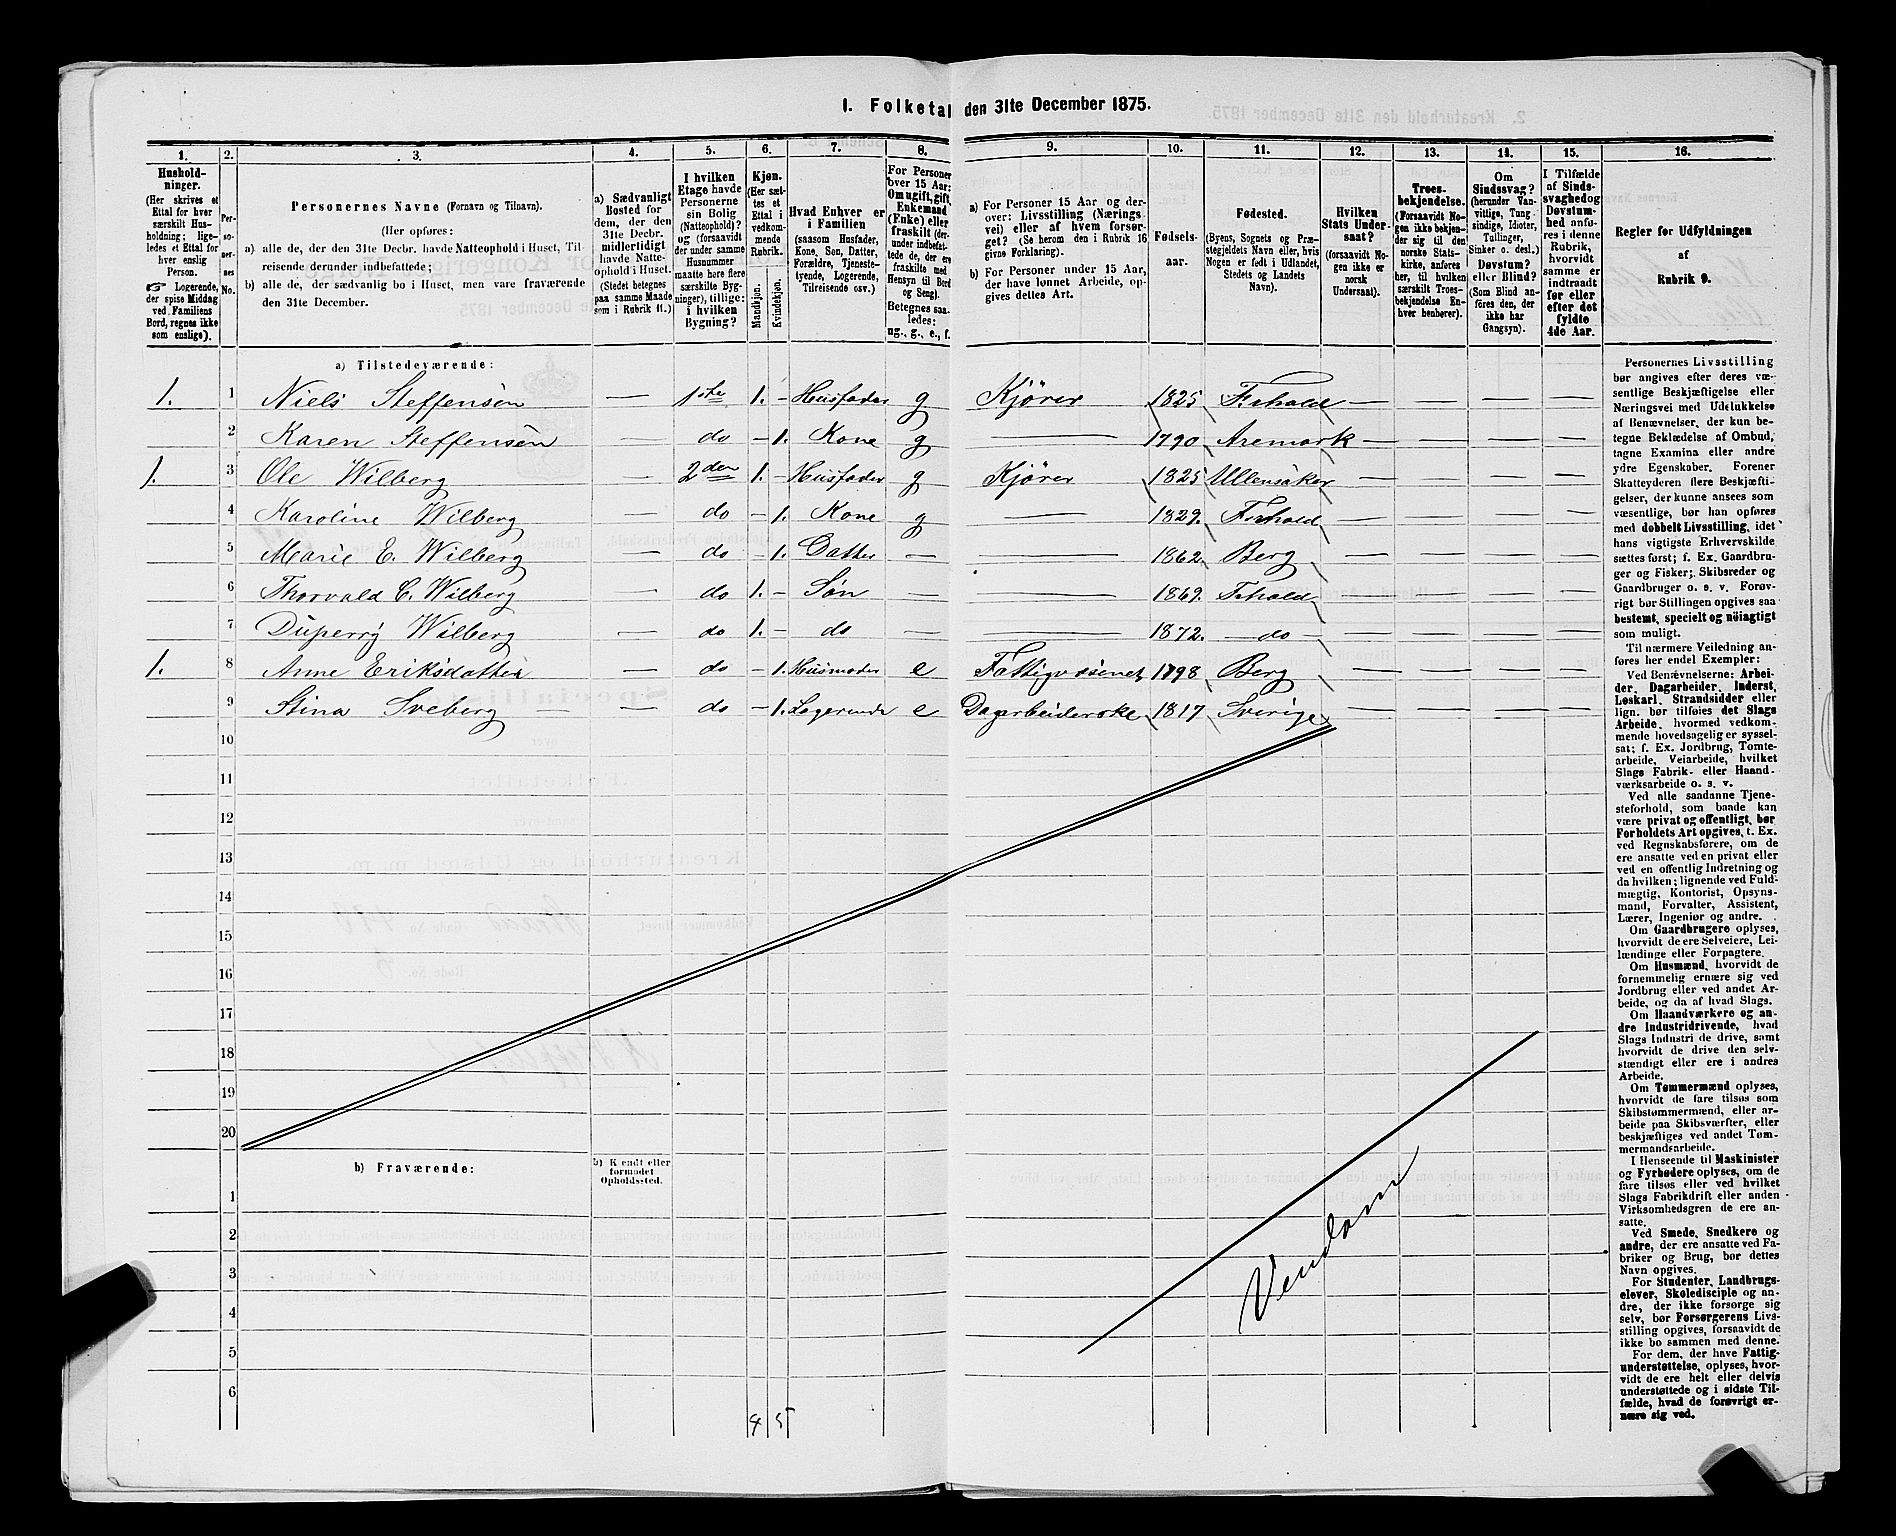 1. Folketal den 31te December 1875.
1. 2. 3. 4. 5. 6. 7. 8. 9. 10. 11. 12. 13. 14. 15. 16.
Hushold-
ninger.
(Her skrives et
Ettal for hver
særskilt Hus-
holdning; lige-
ledes et Ettal for
hver enslig
Person.
☞ Logerende,
der spise Middag
ved Familiens
Bord, regnes ikke
som enslige).
Per-
so-
ner-
nes
No.
Personernes Navne (Fornavn og Tilnavn).
(Her opføres:
a) alle de, der den 31te Decbr. havde Natteophold i Huset, Til-
reisende derunder indbefattede;
b) alle de, der sædvanlig bo i Huset, men vare fraværende
den 31te December.
a) Sædvanligt
Bosted for
dem, der den
31te Decbr.
midlertidigt
havde Natte-
ophold i Huset.
(Stedet betegnes
paa samme Maade
som i Rubrik 11.)
I hvilken
Etage havde
Personerne
sin Bolig
(Natteophold)?
og (forsaavidt
der under samme
Husnummer
maatte høre flere
særskilte Byg-
ninger), tillige:
i hvilken
Bygning?
Kjøn.
(Her sæt-
tes et
Ettal i
vedkom-
mende
Rubrik.
Mandkjøn.
Kvindekjøn.
Hvad Enhver er
i Familien
(saasom Husfader,
Kone, Søn, Datter,
Forældre, Tjeneste-
tyende, Logerende,
Tilreisende osv.)
For Personer
over 15 Aar:
Om ugift, gift,
Enkemand
(Enke) eller
fraskilt (der-
under indbefat-
tede de, der ere
fraskilte med
Hensyn til Bord
og Seng).
Betegnes saa-
ledes:
ug., g., e., f.
a) For Personer 15 Aar og der-
over: Livsstilling (Nærings-
vei) eller af hvem forsør-
get? (Se herom den i Rubrik 16
givne Forklaring).
b) For Personer under 15 Aar,
der have lønnet Arbeide, op-
gives dettes Art.
Fødsels-
aar.
Fødested.
(Byens, Sognets og Præ-
stegjeldets Navn eller, hvis
Nogen er født i Udlandet,
Stedets og Landets
Navn).
Hvilken
Stats Under-
saat?
(forsaavidt No-
gen ikke er
norsk
Undersaat).
Troes-
bekjendelse.
(Forsaavidt No-
gen ikke bekjen-
der sig til den
norske Stats-
kirke, anføres
her, til hvilken
særskilt Troes-
bekjendelse En-
hver henhører).
Om
Sindssvag?
(herunder Van-
vittige, Tung-
sindige, Idioter,
Tullinger,
Sinker o. desl.)
Døvstum?
eller Blind?
(Som Blind an-
føres den, der
ikke har
Gangsyn).
I Tilfælde
af Sinds-
svaghed og
Døvstum-
hed anfø-
res i denne
Rubrik,
hvorvidt
samme er
indtraadt
før eller
efter det
fyldte
4de Aar.
Regler for Udfyldningen
af
Rubrik 9.
a) Tilstedeværende:
1. 1 Niels Steffensen — 1ste 1. - Husfader g Kjører 1825 Fr.hald — — — —
2 Karen Steffensen — do - 1. Kone g — 1790 Aremark — — — —
1. 3 Ole Wilberg — 2den 1. - Husfader g Kjører 1825 Ullensaker — — — —
4 Karoline Wilberg — do - 1. Kone g — 1829. Fr.hald — — — —
5 Marie E. Wilberg — do - 1. Datter — — 1862 Berg — — — —
6 Thorvald C. Wilberg — do 1. - Søn — — 1869. Fr.hald — — — —
7 Duperrÿ Wilberg — do 1. - do — — 1872. — do — — — — —
1. 8 Anne Eriksdatter — do - 1. Husmoder e Fattigvæsenet 1798 Berg — — — —
9 Stina Sveberg — do - 1. Logerende e Dagarbeiderske 1817 Sverige — — — —
10
11
12
13
14
15
16
17
18
19
20
b) Fraværende:
b) Kjendt eller
formodet
Opholdssted.
1
2
3
4
5
6
4 5
Personernes Livsstilling
bør angives efter deres væ-
sentlige Beskjæftigelse eller
Næringsvei med Udelukkelse
af Benævnelser, der kun be-
tegne Beklædelse af Ombud,
tagne Examina eller andre
ydre Egenskaber. Forener
Skatteyderen flere Beskjæfti-
gelser, der kunne ansees som
væsentlige, bør han opføres
med dobbelt Livsstilling, idet
hans vigtigste Erhvervskilde
sættes først; f. Ex. Gaardbru-
ger og Fisker; Skibsreder og
Gaardbruger o. s. v. Forøv-
rigt bør Stillingen opgives saa
bestemt, specielt og nøiagtigt
som muligt.
Til nærmere Veiledning an-
føres her endel Exempler:
Ved Benævnelserne: Arbei-
der, Dagarbeider, Inderst,
Løskarl, Strandsidder eller
lign. bør tilføies det Slags
Arbeide, hvormed vedkom-
mende hovedsagelig er syssel-
sat; f. Ex. Jordbrug, Tomte-
arbeide, Veiarbeide, hvilket
Slags Fabrik- eller Haand-
værksarbeide o. s. v.
Ved alle saadanne Tjene-
steforhold, som baade kan
være privat og offentligt, bør
Forholdets Art opgives, t. Ex.
ved Regnskabsførere, om de
ere ansatte ved en privat eller
ved en offentlig Indretning og
da hvilken; lignende ved Fuld-
mægtig, Kontorist, Opsyns-
mand, Forvalter, Assistent,
Lærer, Ingeniør og andre.
Om Gaardbrugere oplyses,
hvorvidt de ere Selveiere, Lei-
lændinge eller Forpagtere.
Om Husmænd, hvorvidt de
fornemmelig ernære sig ved
Jordbrug eller ved andet Ar-
beide, og da af hvad Slags.
Om Haandværkere og an-
dre Industridrivende, hvad
Slags Industri de drive, samt
hvorvidt de drive den selv-
stændigt eller ere i andres
Arbeide.
Om Tømmermænd oplyses,
hvorvidt de fare tilsøs som
Skibstømmermænd, eller ar-
beide paa Skibsværfter, eller
beskjæftiges ved andet Tøm-
mermandsarbeide.
I Henseende til Maskinister
og Fyrbødere oplyses, om de
fare tilsøs eller ved hvilket
Slags Fabrikdrift eller anden
Virksomhedsgren de ere an-
satte.
Ved Smede, Snedkere og
andre, der ere ansatte ved Fa-
briker og Brug, bør dettes
Navn opgives.
For Studenter, Landbrugs-
elever, Skoledisciple og an-
dre, der ikke forsørge sig
selv, bør Forsørgerens Livs-
stilling opgives, forsaavidt de
ikke bo sammen med denne.
For dem, der have Fattig-
understøttelse, oplyses, hvor-
vidt de ere helt eller delvis
understøttede og i sidste Til-
fælde, hvad de forøvrigt er-
nære sig ved.